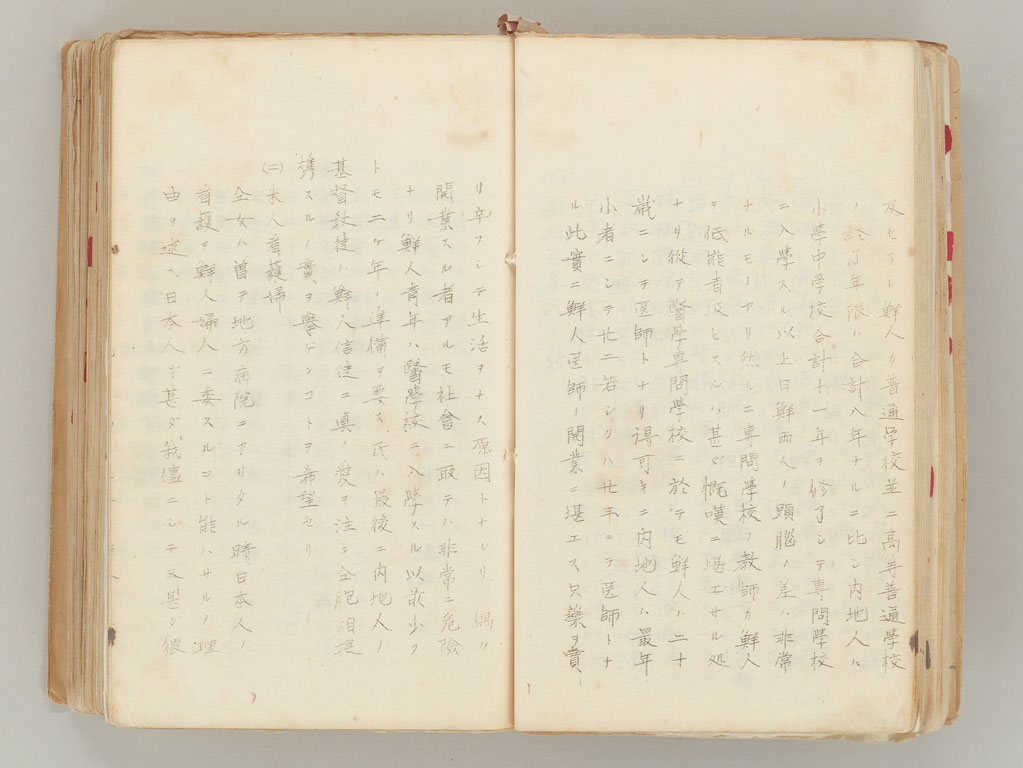 及セラレ鮮人カ普通学校並ニ高等普通學校
ノ終了年限ハ合計八年ナルニ比シ内地人ハ
小學中学校合計十一年ヲ修了シテ専問學校
ニ入學スル以上日鮮両人ノ頭腦ノ差ハ非常
ナルモノアリ然ルニ専問學校ノ教師カ鮮人
ヲ低能者扱ヒスルハ甚タ慨嘆ニ堪エサル処
ナリ從テ醫學専問学校ニ於テモ鮮人ハ二十
歳ニシテ医師トナリ得可キニ内地人ハ最年
小者ニシテ廿二若シクハ廿三ニテ医師トナ
ル此實ニ鮮人医師ノ開業ニ堪エス只藥ヲ賣
リ卒フシテ生活ヲナス原因トナレリ 偶々
開業スル者アルモ社會ニ取テハ非常ニ危險
ナリ鮮人青年ハ醫學校ニ入學スル以前少ク
トモ二ケ年ノ準備ヲ要ス氏ハ最後ニ内地人ノ
基督教徒ハ鮮人信徒ニ真ノ愛ヲ注キ仝胞相提
携スルノ實ヲ擧ケンコトヲ希望セリ
(二)米人看護婦
仝女ハ曽テ地方病院ニアリタル時日本人ノ
看護ヲ鮮人婦人ニ委スルコト能ハサルノ理
由ヲ述ヘ日本人ガ甚ダ我儘ニシテ又甚ダ猥